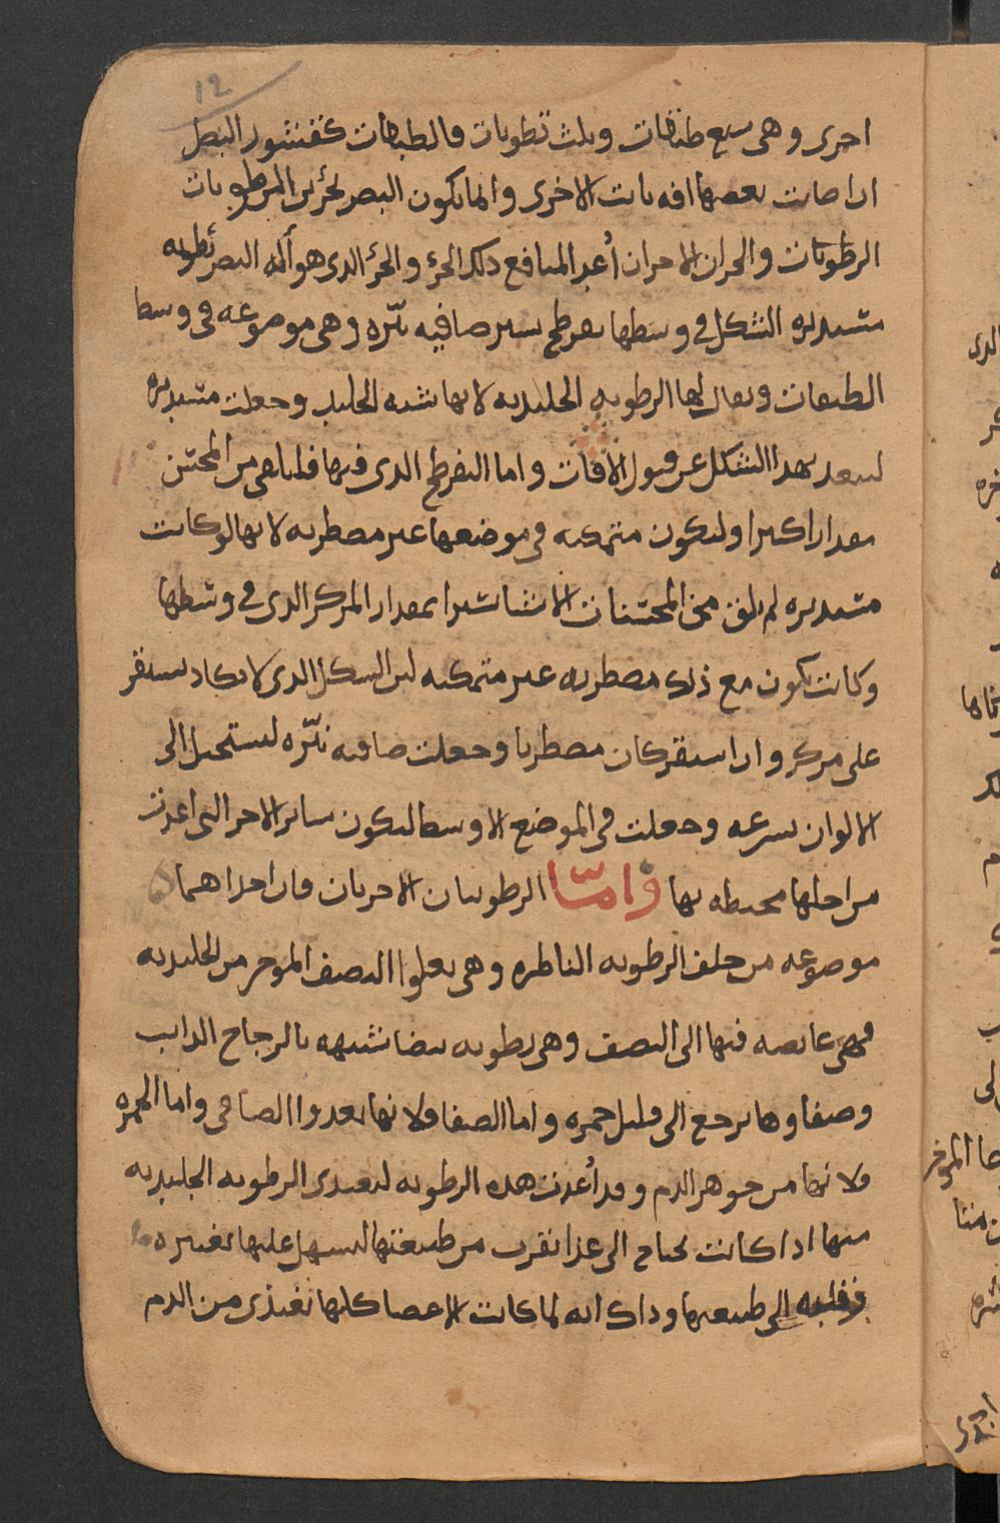 12
احرى وهى سبع طبقات وثلث رطوبات فالطبقات كقشور البصل
ادا صابت بعضها افه نابت الاخرى وانما يكون البصر بجزء من الرطوبات
الرطوبات والجزان الاخران أعد المنافع ذلك الجزء والجزء الدى هو ألة البصر رطوبه
مستديره الشكل فى وسطها تفرطح يسير صافيه نيّره وهى موضوعه فى وسط
الطبقات ويقال لها الرطوبه الجليديه لانها تشبه الجليد وجعلت مستديره
لتبعد بهدا الشكل عن قبول الافات واما التفرطح الدى فيها فلتلقى من المحسّن
مقدارا كثيرا ولتكون متمكنه فى موضعها غير مضطربه لانها لو كانت
مستديره لم يلق من المحسنات الا شيا يسيرا بمقدار المركز الدى فى وسطها
وكانت تكون مع ذلك مضطربه غير متمكنه لان الشكل الدى لا يكاد يستقر
على مركز وان استقر كان مضطربا وجعلت صافيه نيّره لتستحيل الى
الالوان بسرعه وجعلت فى الموضع الاوسط لتكون ساير الاجزا التى اعدت
من اجلها محيطه بها وامّا الرطوبتان الاخريان فان احداهما
موضوعه من خلف الرطوبه الناظره وهى تعلوا النصف الموخر من الجليديه
فهى غايصه فيها الى النصف وهى رطوبه بيضا شبيهه بالزجاج الدايب
وصفاوها يرجع الى قليل حمره واما الصفا فلانها تغدوا الصافى واما الحمره
فلانها من جوهر الدم وقد أعدت هده الرطوبه لتغتدى الرطوبه الجليديه
منها ادا كانت تحتاج الى غدا يقرب من طبيعتها ليسهل عليها تغييره
وقلبه الى طبيعتها وداك انه لما كانت الاعضا كلها تغتذى من الدم